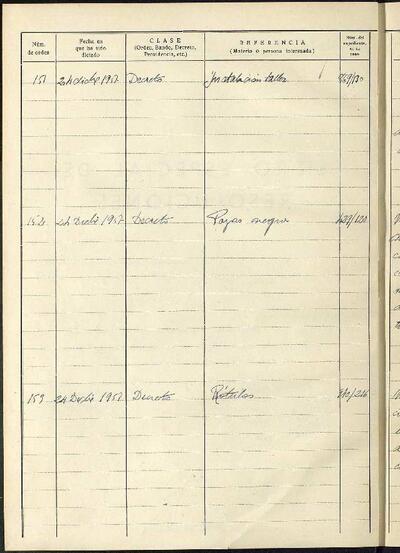 Núm. de orden
Fecha en que ha sido dictado
CLASE
(Orden, Bando, Decreto, Presidencia, etc.)
REFERENCIA
(Materia o persona interesada)
Núm. del expediente,
151 24 dicbre 1957 Decreto Instalación taller
152 24 Dicbre 1957 Decreto Pozos negros
153 24 Dicbre 1957 Decreto Rótulos